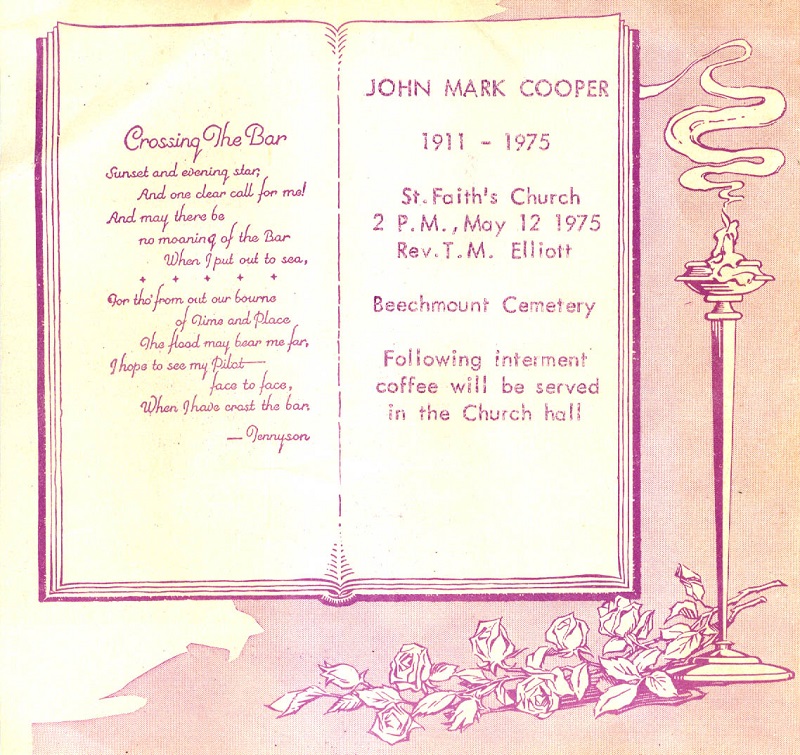 Crossing The Bar
Sunset and evening star,
And one clear call for me!
And may there be
no moaning of the Bar
When I put out to sea,
+ + + + +
For tho' from out our bourne
of Time and Place
The flood may bear me far,
I hope to see my Pilot—
face to face,
When I have crost the bar.
— Tennyson
JOHN MARK COOPER
1911 - 1975
St. Faith's Church
2 P.M., May 12 1975
Rev. T.M. Elliott
Beechmount Cemetery
Following interment
coffee will be served
in the Church hall